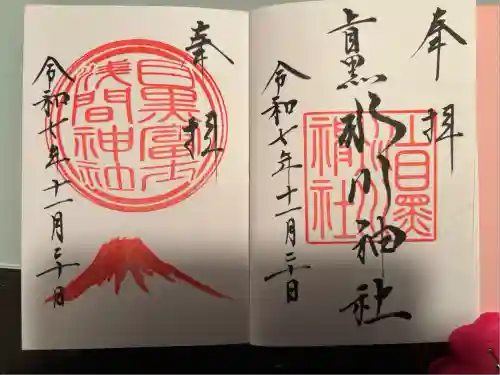 奉拝
上目黒氷川神社
上目黒氷川神社
令和七年十一月二十日
奉拝
目黒富士
浅間神社
令和七年十一月二十日